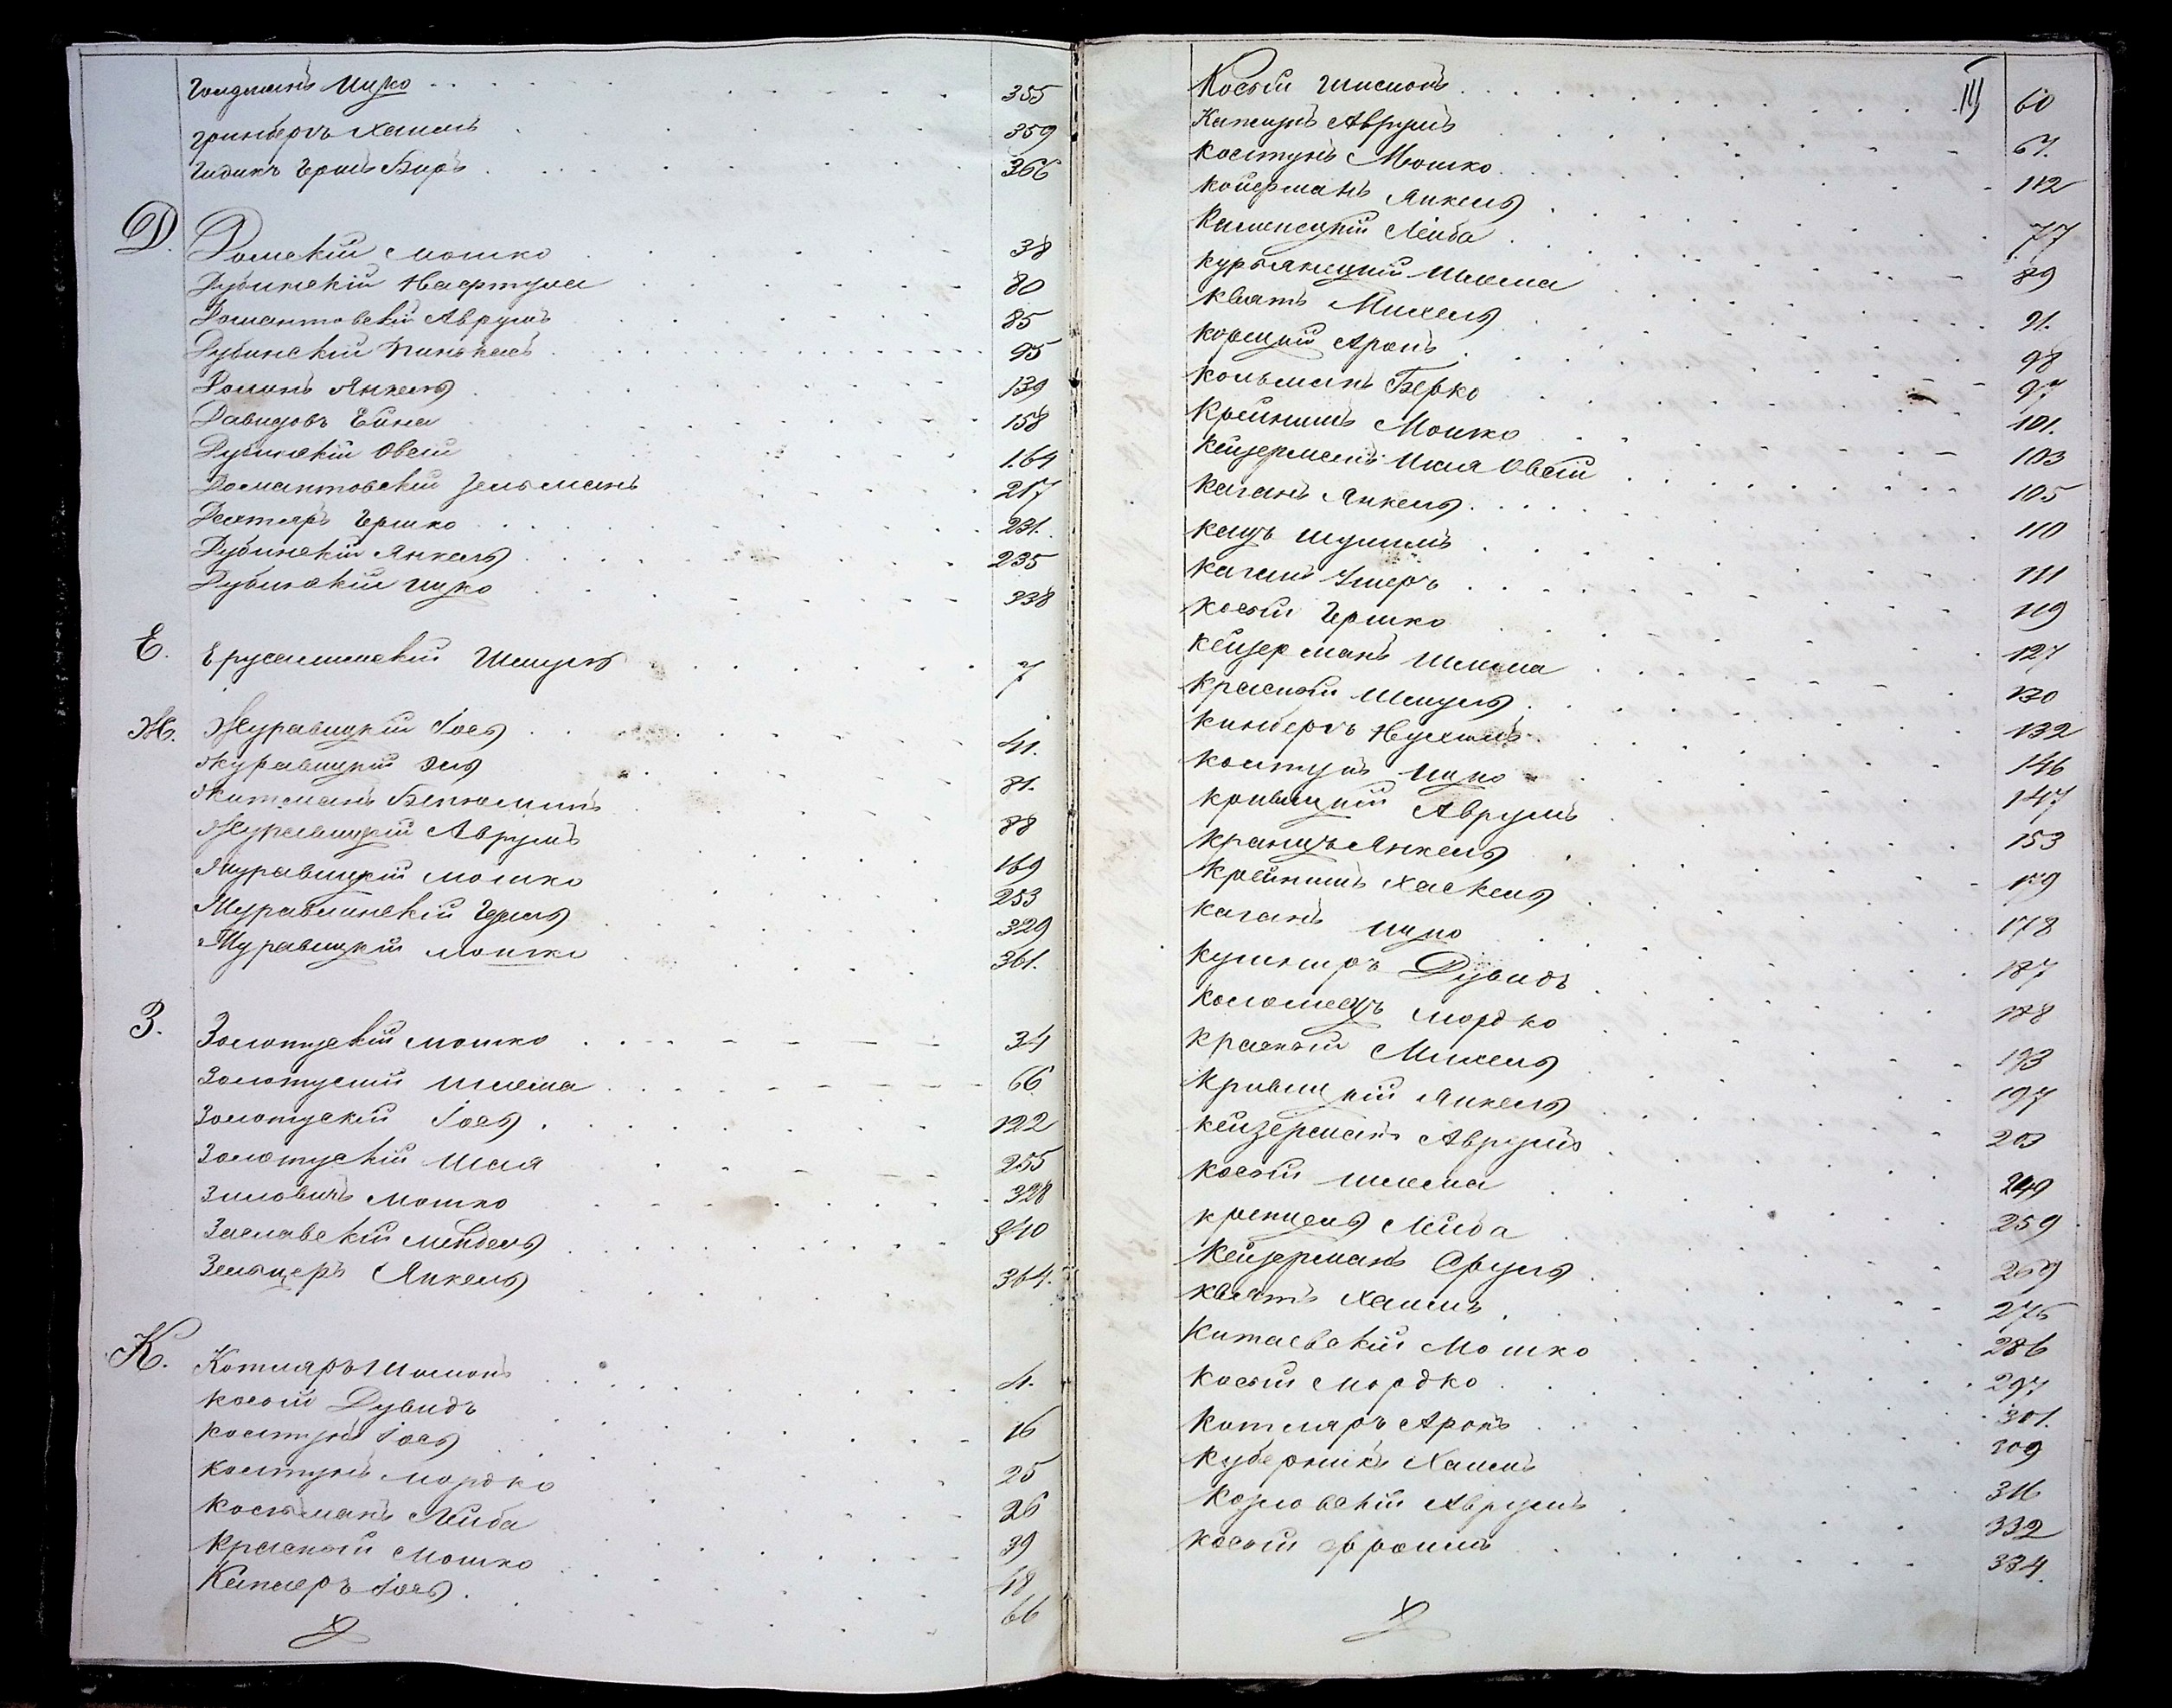 Гольдманъ Ицко 355
Гринбергъ Хаимъ 359
Гидикъ Герш Беръ 366
Д. Домскій Мошко 38
Дубинскій Нафтула 80
Домантовскій Аврумъ 85
Дубинскій Пинькасъ 95
Доминъ Янкель 139
Давидовъ Ейна 158
Дубинскій Овсій 164
Домантовскій Зельманъ 217
Дехтяръ Гершко 231.
Дубинскій Янкель 235
Дубинскій Ицко 238
Е. Ерусалимскій Шмуль 7
Ж. Журавицкій Іось 41.
Журавицкій Эль 81.
Житманъ Беньюминъ 88
Журавицкій Аврумъ 169
Журавицкій Мошко 253
Журавлинскій Гдаль 329
Журавицкій Мошко 361.
З. Золотускій Мошко 34
Золотускій Шлема 66
Золотускій Іось 122
Золотускій Шая 255
Зиловичъ Мошко 328
Заславскій Мендель 340
Зельцеръ Янкель 364.
К. Котляръ Шомонъ 4.
Косой Дувидъ 16
Костунъ Іось 25
Костунъ Мордко 26
Косьманъ Лейба 39
Красной Мошко 48
Капперъ Іось 66
III
Косой Шисмонъ 60
Капецунъ Аврумъ 67.
Костунъ Мошко 112
Койерманъ Янкель 77
Каменецкій Лейба 89
Курьянецкій Шлема 91.
Квятъ Михель 98
Корецкій Аронъ 97
Кольманъ Берко 101.
Крейнинъ Мошко 103
Кейзерманъ Шая Овсій 105
Каганъ Янкель 110
Кацъ Шулимъ 111
Каганъ Ушеръ 119
Косой Гершко 127
Кейзерманъ Шлема 130
Красной Шмуль 132
Кинбергъ Нухимъ 146
Костунъ Ицко 147
Кривицкій Аврумъ 153
Кранцъ Янкель 159
Крейнинъ Хаскель 178
Каганъ Ицко 187
Кушниръ Дувидъ 188
Коломеецъ Мордко 193
Красной Михель 197
Кривицкій Янкель 203
Кейзерманъ Аврумъ 249
Косой Шлема 259
Кренцель Лейба 269
Кейзерманъ Сруль 276
Квятъ Хаимъ 286
Китаевскій Мошко 297
Косой Мордко 301.
Котляръ Аронъ 309
Куберникъ Хаимъ 316
Козловскій Аврумъ 332
Косой Фроимъ 334.